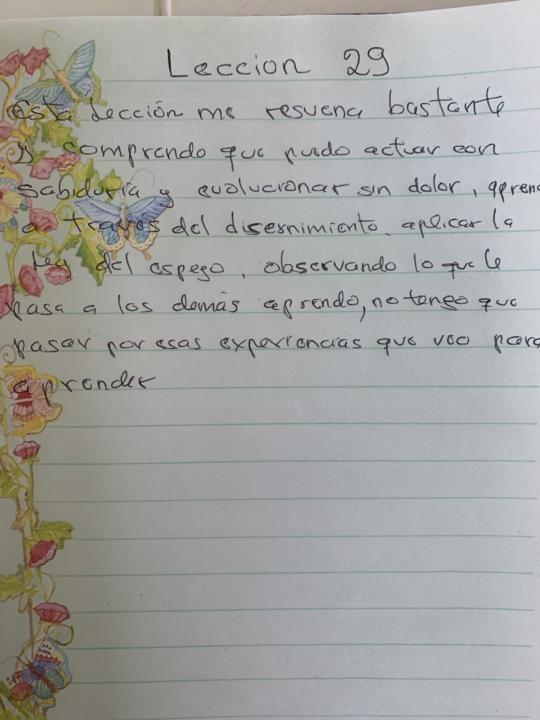 Leccion 29
Esta Lección me resuena bastante
y comprendo que puedo actuar con
sabiduría y evolucionar sin dolor, apren
a través del disernimiento, aplicar la
Ley del espejo, observando lo que le
pasa a los demás aprendo, no tengo que
pasar por esas experiencias que veo para
aprender